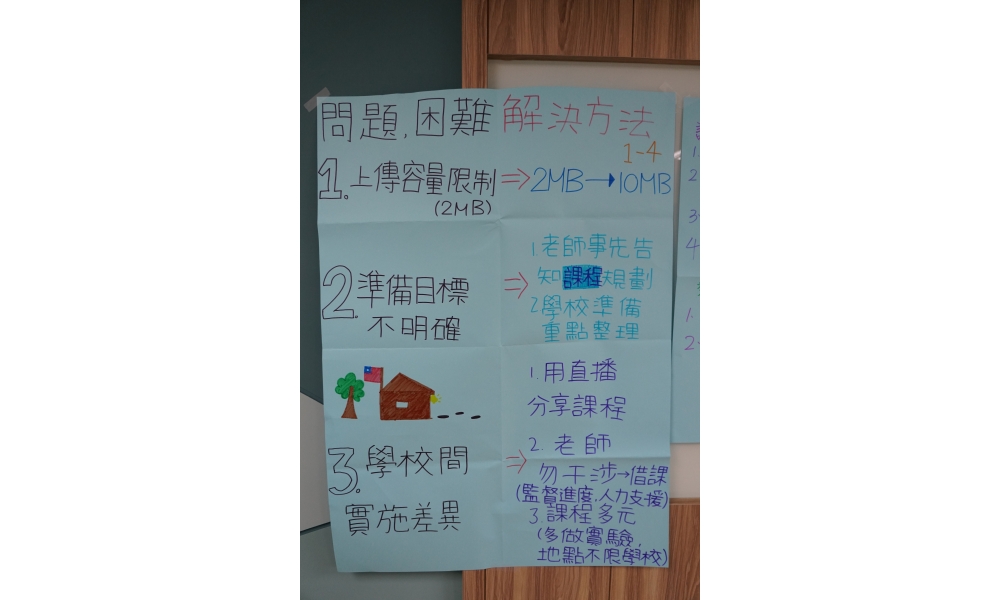 問題,困難 解決方法
1-4
1.上傳容量限制⇒2MB→10MB
(2MB)
2.準備目標
不明確
⇒
1.老師事先告
知課程規劃
2.學校準備
重點整理
3.學校間
實施差異
⇒
1.用直播
分享課程
2.老師
勿干涉→借課
(監督進度.人力支援)
3.課程多元
(多做實驗,
地點不限學校)
1.
2
3.
4
1.
2.